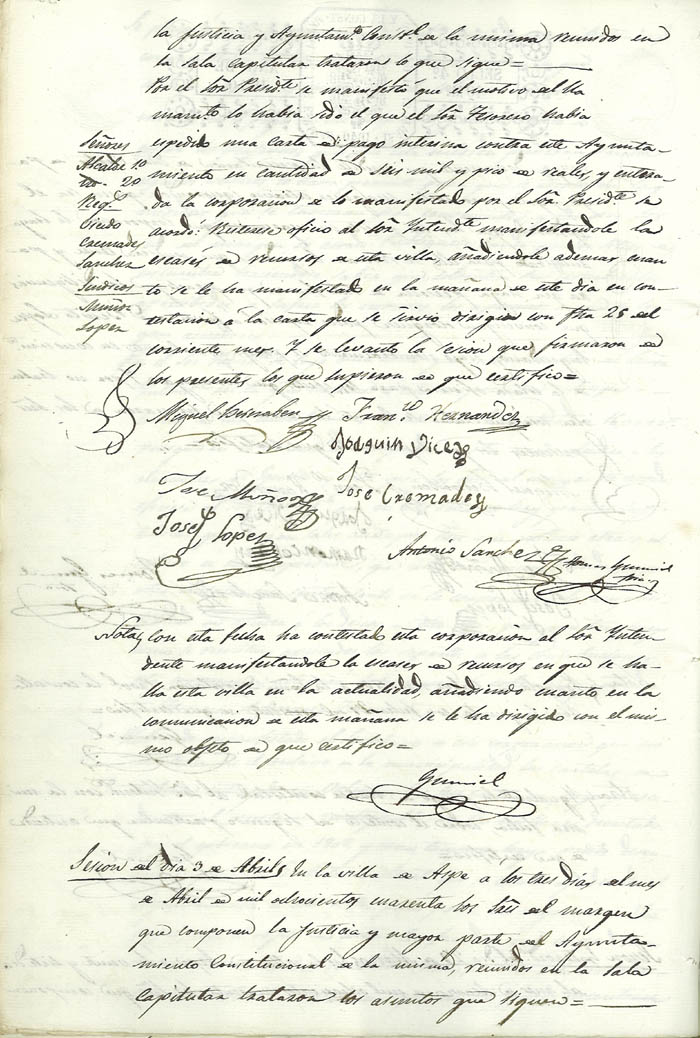 la Justicia y Ayuntam.to Const.l de la misma reunidos en
la Sala Capitular trataron lo que sigue=
Por el Sōr Presid.te se manifestó que el motivo del lla
mam.to lo habia sido el que el Sōr Tesorero habia
espedido una carta de pago interina contra este Ayunta-
miento en cantidad de seis mil y pico de reales, y entera-
da la corporacion de lo manifestado por el Sōr Presid.te se
acordó: oficio al Sōr Yntend.te manifestandole la
escasés de recursos de esta villa, añadiendole ademas cuan
to se le ha manifestado en la mañana de este dia en con-
testacion á la carta que se sirvio dirigir con fha 28 del
corriente mes. Y se levantó la sesion que firmaron de
los presentes los que supieron de que certifico=
Señores
Alcalde 1º
Yd. 2º
Reg.s
Viedo
Cremades
Sanchez
Sindicos
Muñoz
Lopez
Miguel
Fran.co Hernandez
Joaquin
Jose Muñoz
Jose Cremades
Josef Lopez
Antonio Sanchez
Tomas Gumiel
Srio
Nota, con esta fecha ha contestado esta corporacion al Sōr Yuten
dente manifestandole la escases de recursos en que se ha-
lla esta villa en la actualidad, añadiendo cuanto en la
comunicacion de esta mañana se le ha dirigido con el mis-
mo objeto de que certifico=
Gumiel
Sesion del dia 3 de Abril, En la villa de Aspe á los tres dias del mes
de Abril de mil ochocientos cuarenta los Sres del margen
que componen la Justicia y mayor parte del Ayunta-
miento Constitucional de la misma, reunidos en la Sala
Capitular trataron los asuntos que siguen=